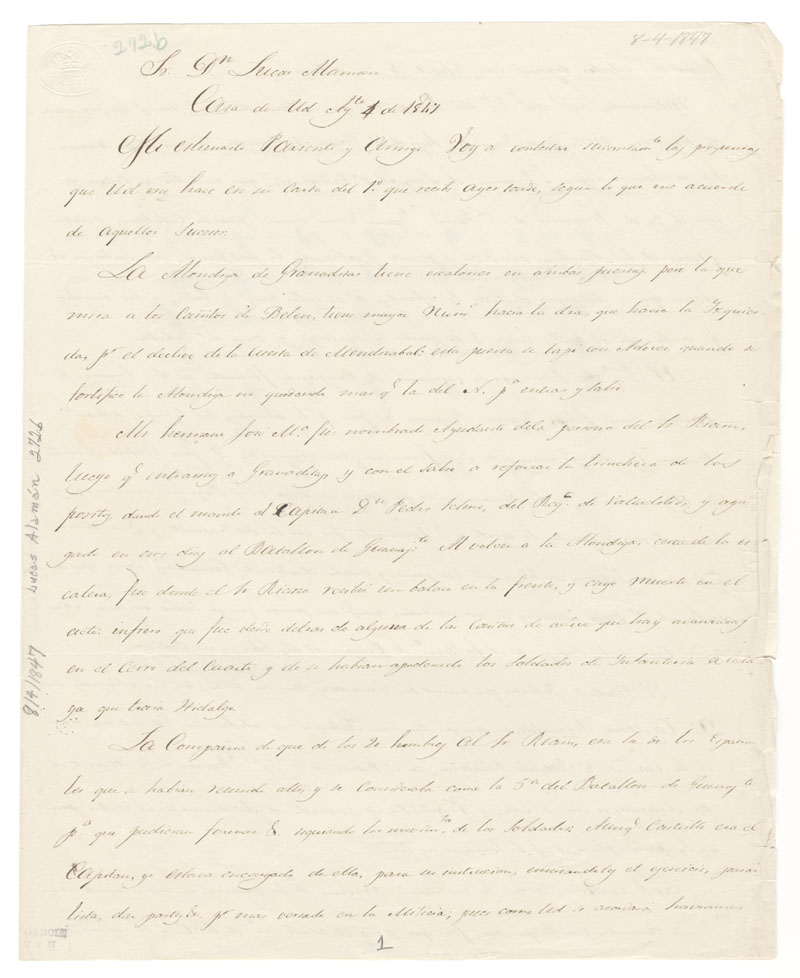 2726
8-4-1847
Sr. Dn. Lucas Alaman.
Casa de Ud. Agto. 4 de 1847
Mi estimado Pariente y Amigo. Voy a contestar las preguntas
que Ud. me hace en su Carta del 1.º que recibi Ayer tarde, según lo que me acuerdo
de aquellos sucesos.
La Alondiga de Granaditas tiene escalones en ambas puertas, por la que
mira a los Cañitos de Belen, tiene mayor Núm.º hacia la dra. que hacia la Izquier-
da, pr. el declive de la Cuesta de Mendizabal: esta puerta se tapó con Adoves, quando se
fortificó la Alondiga no quedando mas q. la del N. pª entrar y salir
Mi hermano José M.ª fue nombrado Ayudante dela persona del Sr. Riaño,
luego q. entramos a Granaditas, y con el salió a reforzar la trinchera de los
dando el mando al Capitan Dn. Pedro Telmo, del Regto. de Valladolid, y agre-
gado en esos dias al Batallon de Guanajto. Al volver a la Alondiga, cerca de la es-
calera, fue donde el Sr. Riaño recibió un balazo en la frente, y cayó muerto en el
acto: infiero que fue desde detras de alguna de las Casitas de adove que hay
en el Cerro del Cuarto y de se habian apoderado los soldados de Infanteria
ya que traia Hidalgo.
La Compañia de que dio los 20 hombres al Sr. Riaño, era la de los Españo-
les que se habian reunido alli, y se Consideraba como la 5ª del Batallon de Guanajto.
pª que pudieran formar &. siguiendo los movimtos. de los soldados; Aunq. Castillo era el
Capitan, yo estava encargado de ella, para su instruccion, enseñandoles el ejercicio, pasar
lista, dar partes &. pr. mas versado en la Milicia; pues como Ud. se acordará
1
Lucas Alamán 2726
8/4/1847